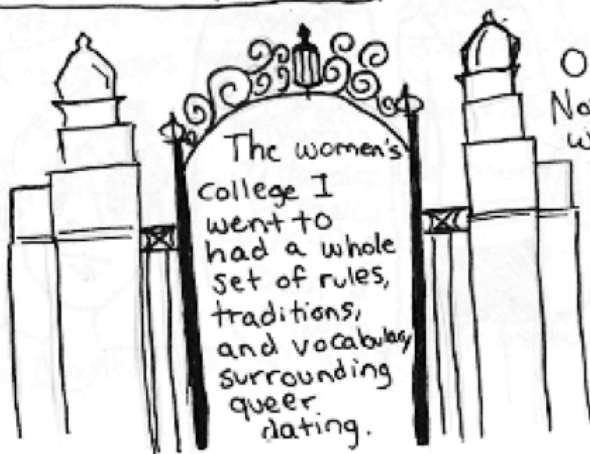 The women's
college I
went to
had a whole
set of rules,
traditions,
and vocabulary
surrounding
queer
dating.